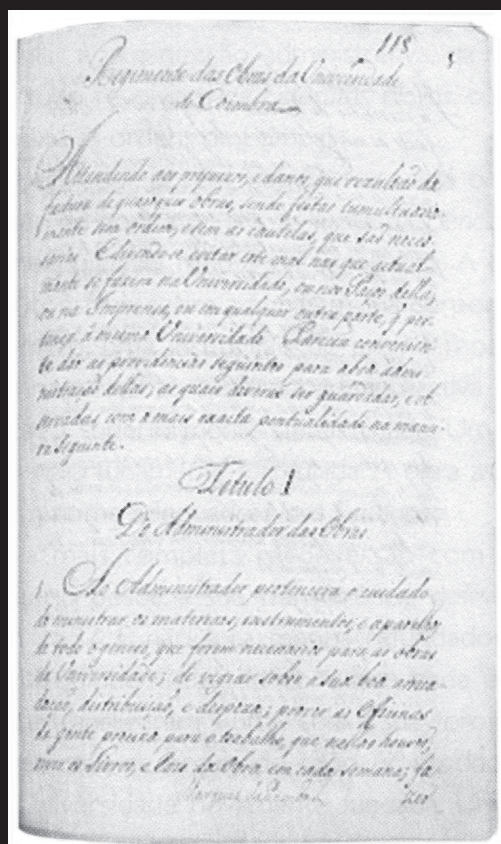 118
Regimento das Obras da Universidade
de Coimbra
Attendendo aos prejuizos, e danos, que rezultão da
factura de quaesquer obras, sendo feitas tumultuaria-
mente sem ordem, e sem as cautelas, que são neces-
sarias: E devendo-se evitar este mal nas que actual-
mente se fazem na Universidade, ou nos Paços della;
ou na Imprensa, ou em qualquer outra parte, q̃ per-
tença á mesma Universidade: Pareceu convenien-
te dar as providencias seguintes para a boa admi-
nistração dellas; as quaes deverão ser guardadas, e ob-
servadas com a mais exacta pontualidade na manei-
ra seguinte.
Titulo I
Do Administrador das Obras
1. Ao Administrador pertencerá o cuidado
de ministrar os materiaes, instrumentos, e aparelhos
de todo o genero, que forem necessarios para as obras
da Universidade; de vigiar sobre a sua boa arreca-
dação, distribuição, e despeza; prover as Officinas
de gente preciza para o trabalho, que nellas houver;
os Livros, e Ponto da Obra, em cada semana; fa-
Marquez de Pombal
zer